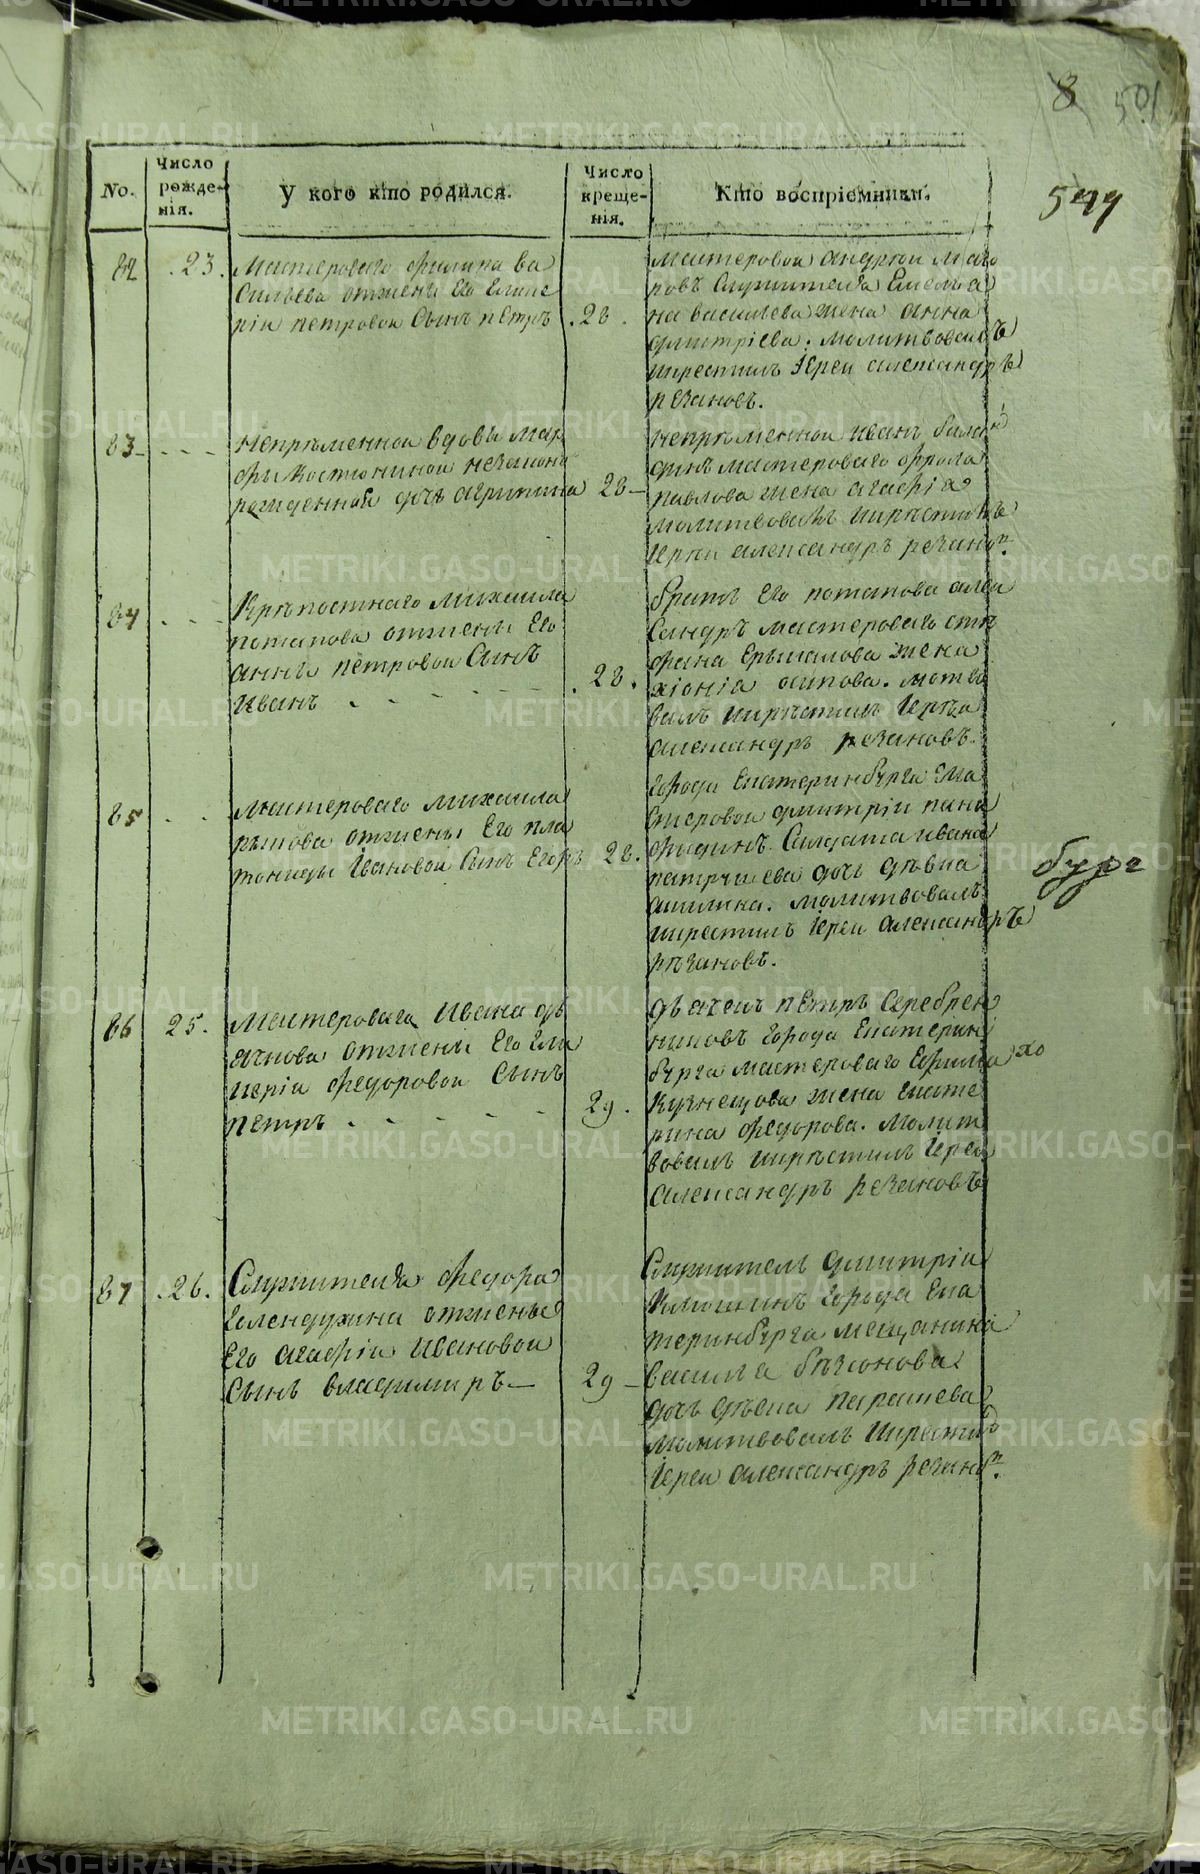 8 501
549
No.
Число рожденія.
У кого кто родился.
Число крещенія.
Кто воспріемники.
82 . 23 .
Мастероваго филипа ва
сильева отжены его
рiи петровои сынъ петръ
. 28 .
мастеровои андреи
ровъ служителя Емелья
на васильева жена анна
дмитрiева. молитвовалъ
икрестилъ Iереи александръ
резановъ.
83 - - - -
непременнои вдовы мар
фы костюнинои незаконно
рожденная дочь агрипина
28 -
непременнои иванъ
динъ мастероваго фрола
павлова жена агафiя
молитвовалъ икрестилъ
Iереи александръ резановъ.
84 . - -
Крѣпостнаго михаила
потапова отжены его
анны петровои сынъ
иванъ . - - - - -
. 28 .
братъ его потапова алек
сандръ мастероваго сте
фана Ермакова жена
хiонiя осипова. молтво
валъ икрестилъ Iереи
александръ резановъ.
85 . .
мастероваго михаила
рынова отжены его пла
тониды Ивановои сынъ Егоръ
28.
города екатеринбурга ма
стеровои дмитрiи пана
фидинъ. салдата ивана
патрушева дочь девка
акилина. молитвовалъ
икрестилъ Iереи александръ
резановъ.
бург
86 25 .
Мастероваго Ивана дь
ячкова отжены его гли
керiи федоровои сынъ
петръ . - - - -
29 .
дьячекъ петръ серебрен
никовъ города Екатерин
бурга мастероваго Ефима
Кузнецова жена екате
рина федорова. молит
вовалъ икрестилъ Iереи
александръ резановъ
87 . 26 .
Служителя федора
голендухина отжены
его агафiи ивановои
сынъ владимиръ -
29 -
Служитель дмитрiи
города Ека
теринбурга мещанина
василья
дочь девка парасковья
молитвовалъ икрестилъ
Iереи александръ резановъ.
METRIKI.GASO-URAL.RU